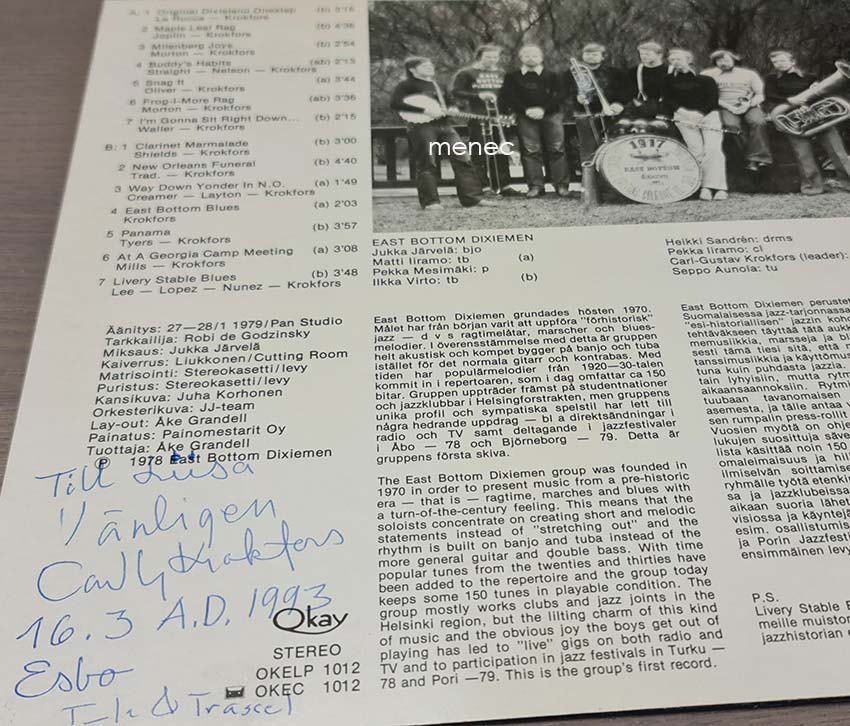 A: 1 Original Dixieland Onestep (b) 3'15
La Rocca — Krokfors
2 Maple Leaf Rag (b) 4'36
Joplin — Krokfors
3 Milenberg Joys (b) 2'54
Morton — Krokfors
4 Buddy's Habits (ab) 2'13
Straight — Nelson — Krokfors
5 Snag It (a) 3'44
Oliver — Krokfors
6 Frog-I-More Rag (ab) 3'36
Morton — Krokfors
7 I'm Gonna Sit Right Down... (b) 2'15
Waller — Krokfors
B: 1 Clarinet Marmalade (b) 3'00
Shields — Krokfors
2 New Orleans Funeral (b) 4'40
Trad. — Krokfors
3 Way Down Yonder In N.O. (a) 1'49
Creamer — Layton — Krokfors
4 East Bottom Blues (a) 2'03
Krokfors
5 Panama (b) 3'57
Tyers — Krokfors
6 At A Georgia Camp Meeting (a) 3'08
Mills — Krokfors
7 Livery Stable Blues (b) 3'48
Lee — Lopez — Nunez — Krokfors
Äänitys: 27—28/1 1979/Pan Studio
Tarkkailija: Robi de Godzinsky
Miksaus: Jukka Järvelä
Kaiverrus: Liukkonen/Cutting Room
Matrisointi: Stereokasetti/levy
Puristus: Stereokasetti/levy
Kansikuva: Juha Korhonen
Orkesterikuva: JJ-team
Lay-out: Åke Grandell
Painatus: Painomestarit Oy
Tuottaja: Åke Grandell
Ⓟ 1978 East Bottom Dixiemen
Till Lusa
Vänligen
Carl G Krokfors
16.3 A.D. 1993
Esbo
Okay
STEREO
OKELP 1012
OKEC 1012
menec
1917
EAST BOTTOM
EAST BOTTOM DIXIEMEN
Jukka Järvelä: bjo
Matti Iiramo: tb (a)
Pekka Mesimäki: p
Ilkka Virto: tb (b)
Heikki Sandrén: drms
Pekka Iiramo: cl
Carl-Gustav Krokfors (leader):
Seppo Aunola: tu
East Bottom Dixiemen grundades hösten 1970.
Målet har från början varit att uppföra "förhistorisk"
jazz — d v s ragtimelåtar, marscher och blues-
melodier. I överensstämmelse med detta är gruppen
helt akustisk och kompet bygger på banjo och tuba
istället för det normala gitarr och kontrabas. Med
tiden har populärmelodier från 1920—30-talen
kommit in i repertoaren, som i dag omfattar ca 150
bitar. Gruppen uppträder främst på studentnationer
och jazzklubbar i Helsingforstrakten, men gruppens
unika profil och sympatiska spelstil har lett till
några hedrande uppdrag — bl a direktsändningar i
radio och TV samt deltagande i jazzfestivaler
i Åbo — 78 och Björneborg — 79. Detta är
gruppens första skiva.
The East Bottom Dixiemen group was founded in
1970 in order to present music from a pre-historic
era — that is — ragtime, marches and blues with
a turn-of-the-century feeling. This means that the
soloists concentrate on creating short and melodic
statements instead of "stretching out" and the
rhythm is built on banjo and tuba instead of the
more general guitar and double bass. With time
popular tunes from the twenties and thirties have
been added to the repertoire and the group today
keeps some 150 tunes in playable condition. The
group mostly works clubs and jazz joints in the
Helsinki region, but the lilting charm of this kind
of music and the obvious joy the boys get out of
playing has led to "live" gigs on both radio and
TV and to participation in jazz festivals in Turku —
78 and Pori —79. This is the group's first record.
East Bottom Dixiemen perustet
Suomalaisessa jazz-tarjonnassa
"esi-historiallisen" jazzin koho
tehtäväkseen täyttää tätä aukk
melodioita, marsseja ja bl
sesti tämä tiesi sitä, että r
tanssimusiikkia ja käyttömus
tuna kuin puhdasta jazzia.
tain lyhyisiin, mutta rytm
aikaansaannoksiin. Rytmi
tuubaan tavanomaisen
asemesta, ja tälle antaa v
sen rumpalin press-rollit
Vuosien myötä on ohje
lukujen suosittuja säve
lista käsittää noin 150
omaleimaisuus ja hil
ilmiselvän soittamise
ryhmälle työtä etenkin
sa ja jazzklubeissa
aikaan suoria lähet
visiossa ja käyntejä
esim. osallistumis
ja Porin Jazzfesti
ensimmäinen levy
P.S.
Livery Stable B
meille muistor
jazzhistorian